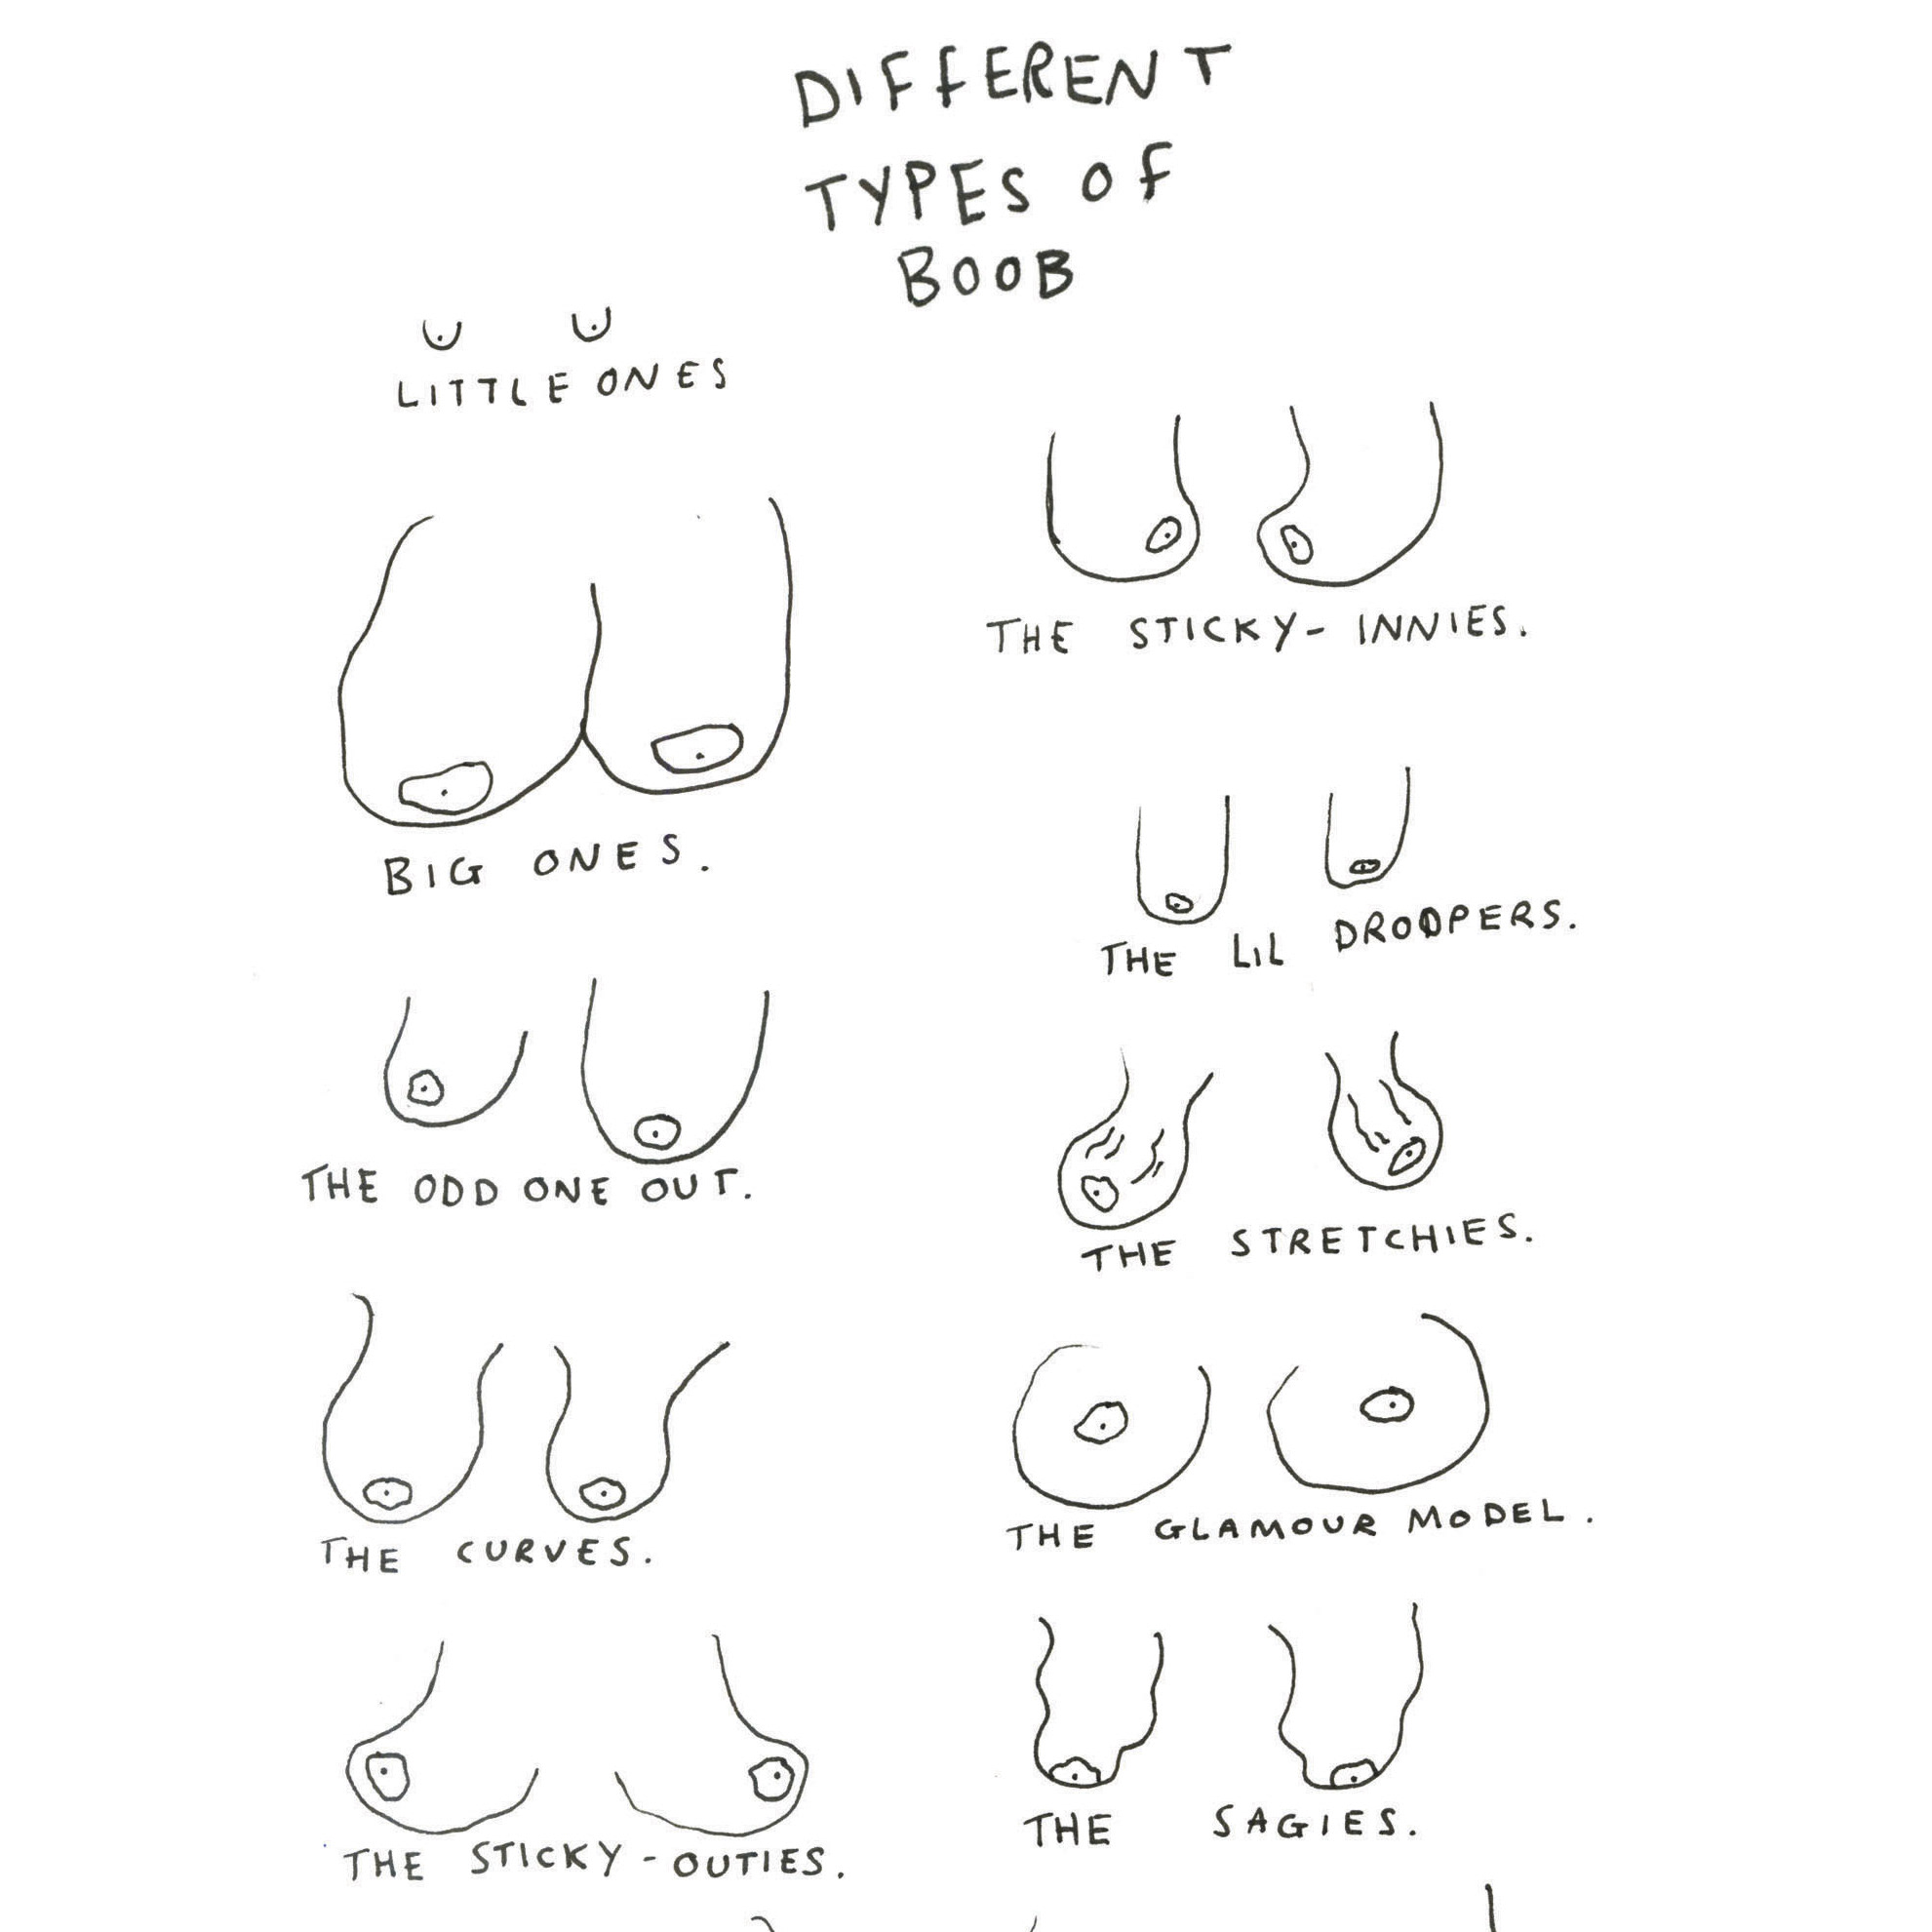 DIFFERENT
TYPES OF
BOOB
LITTLE ONES
THE STICKY-INNIES.
BIG ONES.
THE LIL DROOPERS.
THE ODD ONE OUT.
THE STRETCHIES.
THE CURVES.
THE GLAMOUR MODEL.
THE STICKY-OUTIES.
THE SAGIES.